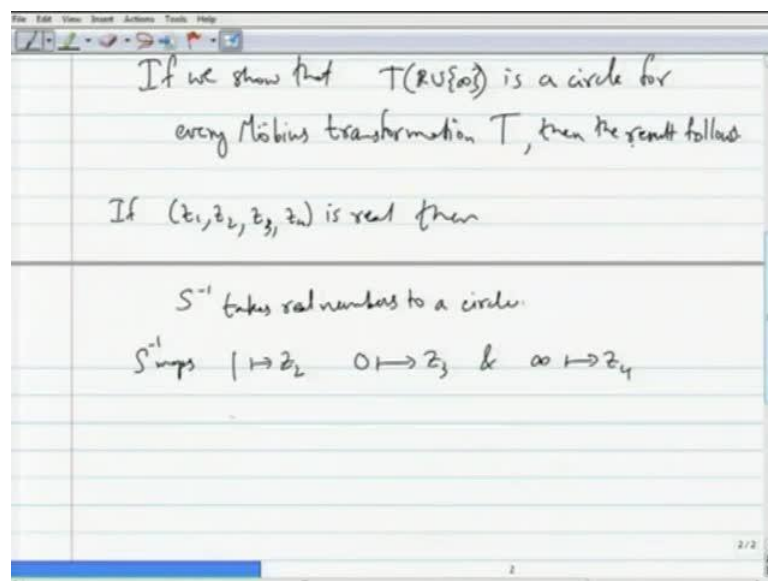 File Edit View Insert Actions Tools Help
If we show that T(ℝ∪{∞}) is a circle for
every Möbius transformation T, then the result follows
If (z₁, z₂, z₃, z₄) is real then
S⁻¹ takes real numbers to a circle.
S⁻¹ maps 1 ↦ z₂ 0 ↦ z₃ & ∞ ↦ z₄
2/2
2